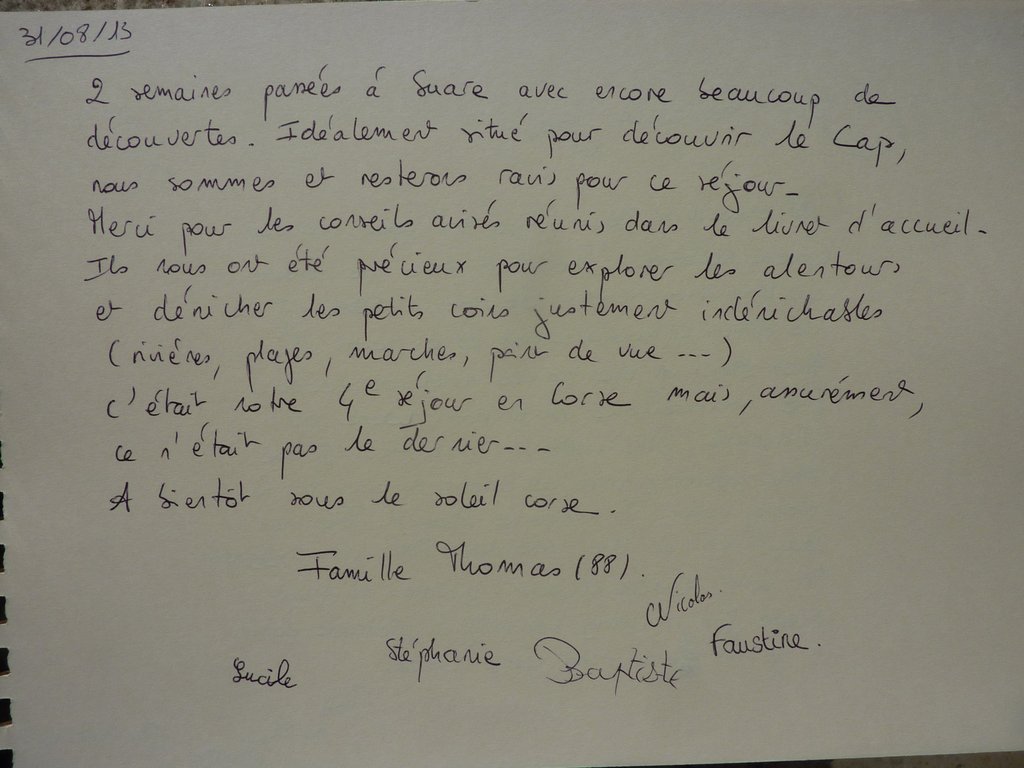 31/08/13
2 semaines passées à Suare avec encore beaucoup de
découvertes. Idéalement situé pour découvrir le Cap,
nous sommes et resterons ravis pour ce séjour_
Merci pour les conseils avisés réunis dans le livret d'accueil_
Ils nous ont été précieux pour explorer les alentours
et dénicher les petits coins justement indénichables
(rivières, plages, marches, point de vue ---)
C'était notre 4e séjour en Corse mais, assurément,
ce n'était pas le dernier---
A bientôt sous le soleil corse.
Famille Thomas (88).
Nicolas.
Lucile Stéphanie Baptiste Faustine.